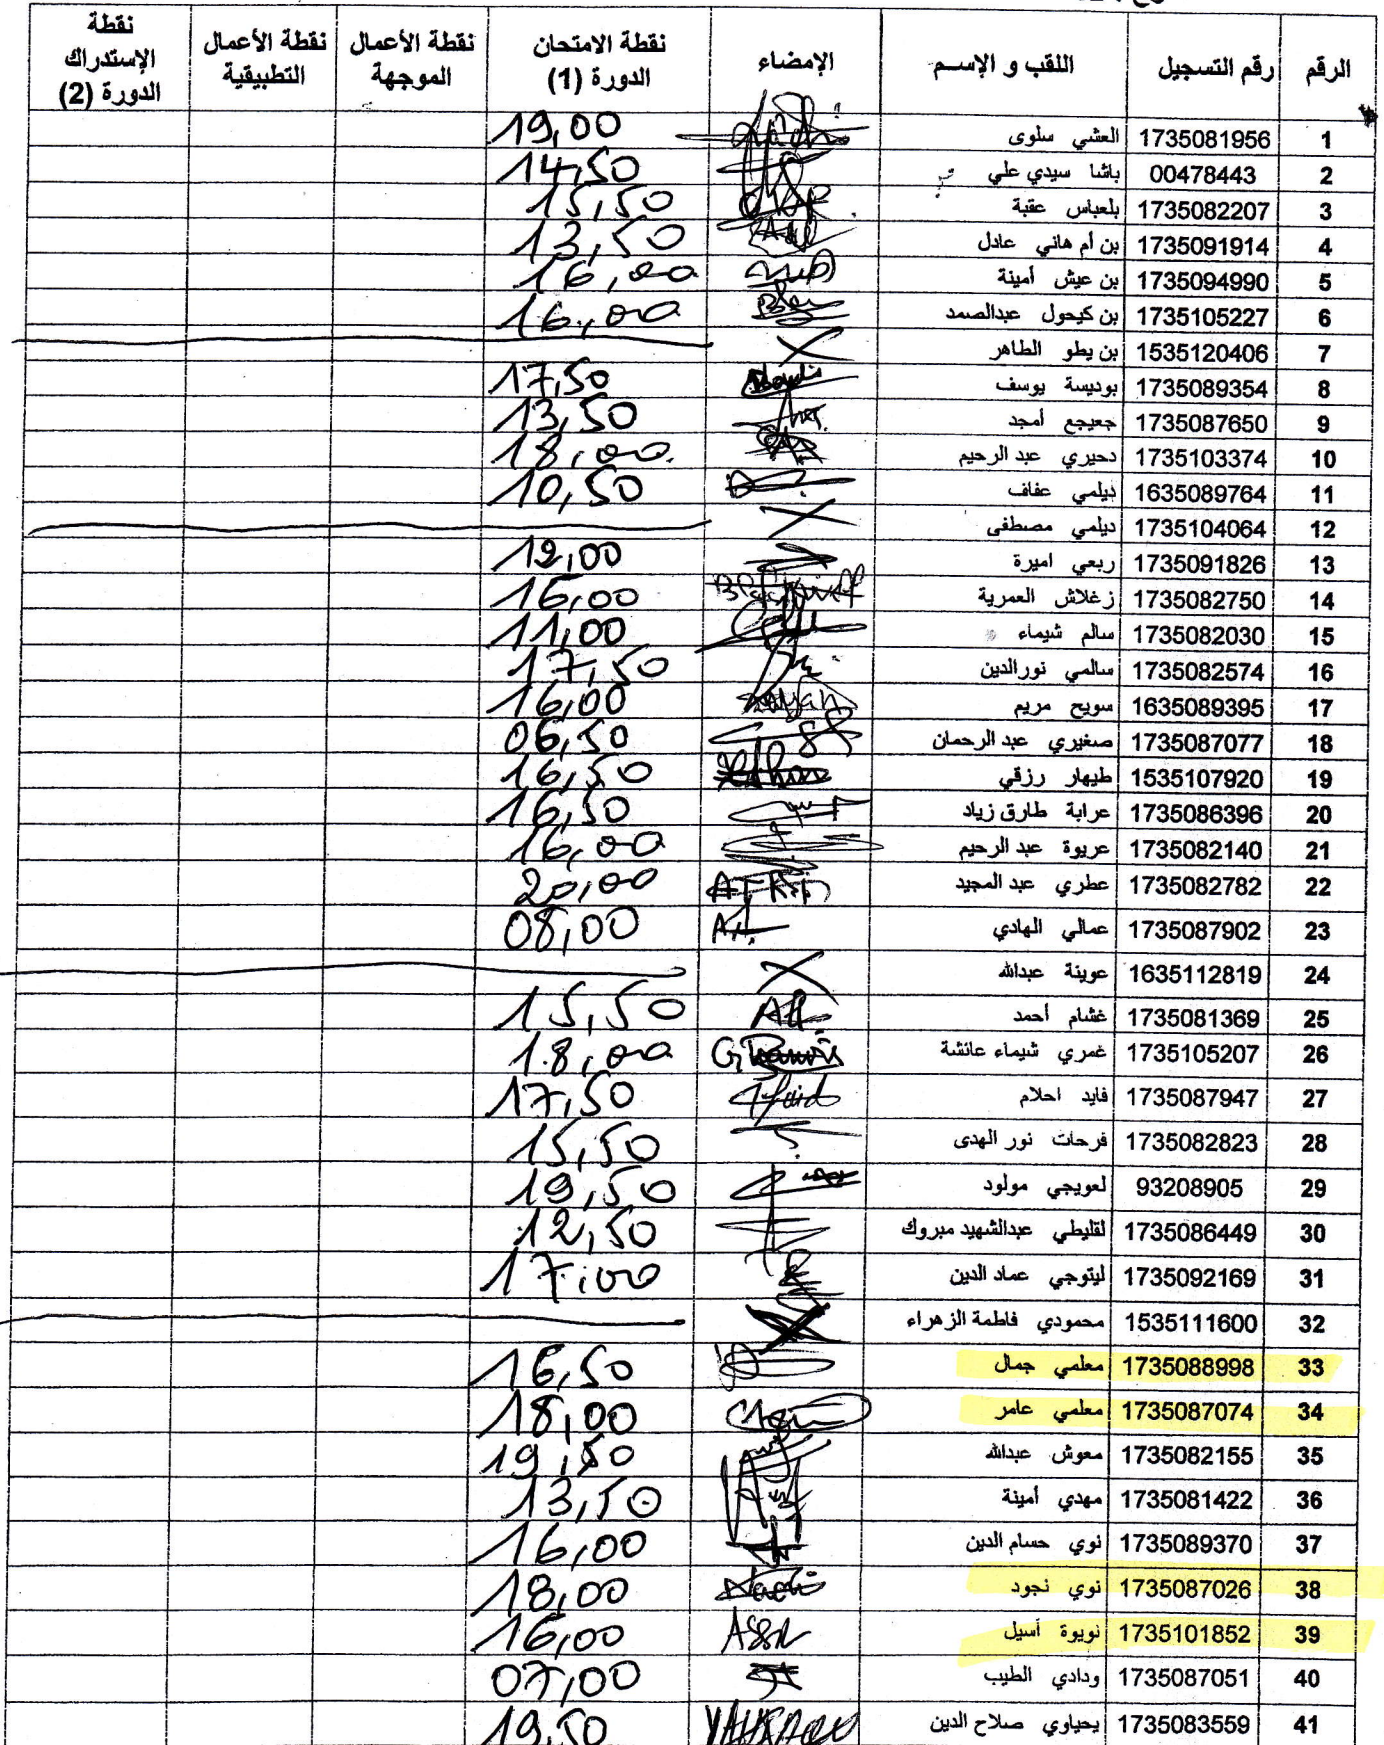 الرقم رقم التسجيل اللقب و الإسم الإمضاء نقطة الامتحان الدورة (1) نقطة الأعمال الموجهة نقطة الأعمال التطبيقية نقطة الإستدراك الدورة (2)
1 1735081956 العشي سلوى 19,00
2 00478443 باشا سيدي علي 14,50
3 1735082207 بلعباس عقبة 15,50
4 1735091914 بن أم هاني عادل 13,50
5 1735094990 بن عيش أمينة 16,00
6 1735105227 بن كيحول عبدالصمد 16,00
7 1535120406 بن يطو الطاهر
8 1735089354 بوديسة يوسف 17,50
9 1735087650 جعيجع أمجد 13,50
10 1735103374 دحيري عبد الرحيم 18,00
11 1635089764 ديلمي عفاف 10,50
12 1735104064 ديلمي مصطفى
13 1735091826 ربعي اميرة 12,00
14 1735082750 زغلاش العمرية 16,00
15 1735082030 سالم شيماء 11,00
16 1735082574 سالمي نورالدين 17,50
17 1635089395 سويح مريم 16,00
18 1735087077 صغيري عبد الرحمان 06,50
19 1535107920 طيهار رزقي 16,50
20 1735086396 عرابة طارق زياد 16,50
21 1735082140 عريوة عبد الرحيم 16,00
22 1735082782 عطري عبد المجيد 20,00
23 1735087902 عمالي الهادي 08,00
24 1635112819 عوينة عبدالله
25 1735081369 غشام أحمد 15,50
26 1735105207 غمري شيماء عائشة 18,00
27 1735087947 فايد احلام 17,50
28 1735082823 فرحات نور الهدى 15,50
29 93208905 لعويجي مولود 19,50
30 1735086449 لقليطي عبدالشهيد مبروك 12,50
31 1735092169 ليتوجي عماد الدين 17,00
32 1535111600 محمودي فاطمة الزهراء
33 1735088998 معلمي جمال 16,50
34 1735087074 معلمي عامر 18,00
35 1735082155 معوش عبدالله 19,50
36 1735081422 مهدي أمينة 13,50
37 1735089370 نوي حسام الدين 16,00
38 1735087026 نوي نجود 18,00
39 1735101852 نويوة أسيل 16,00
40 1735087051 ودادي الطيب 07,00
41 1735083559 يحياوي صلاح الدين 19,50